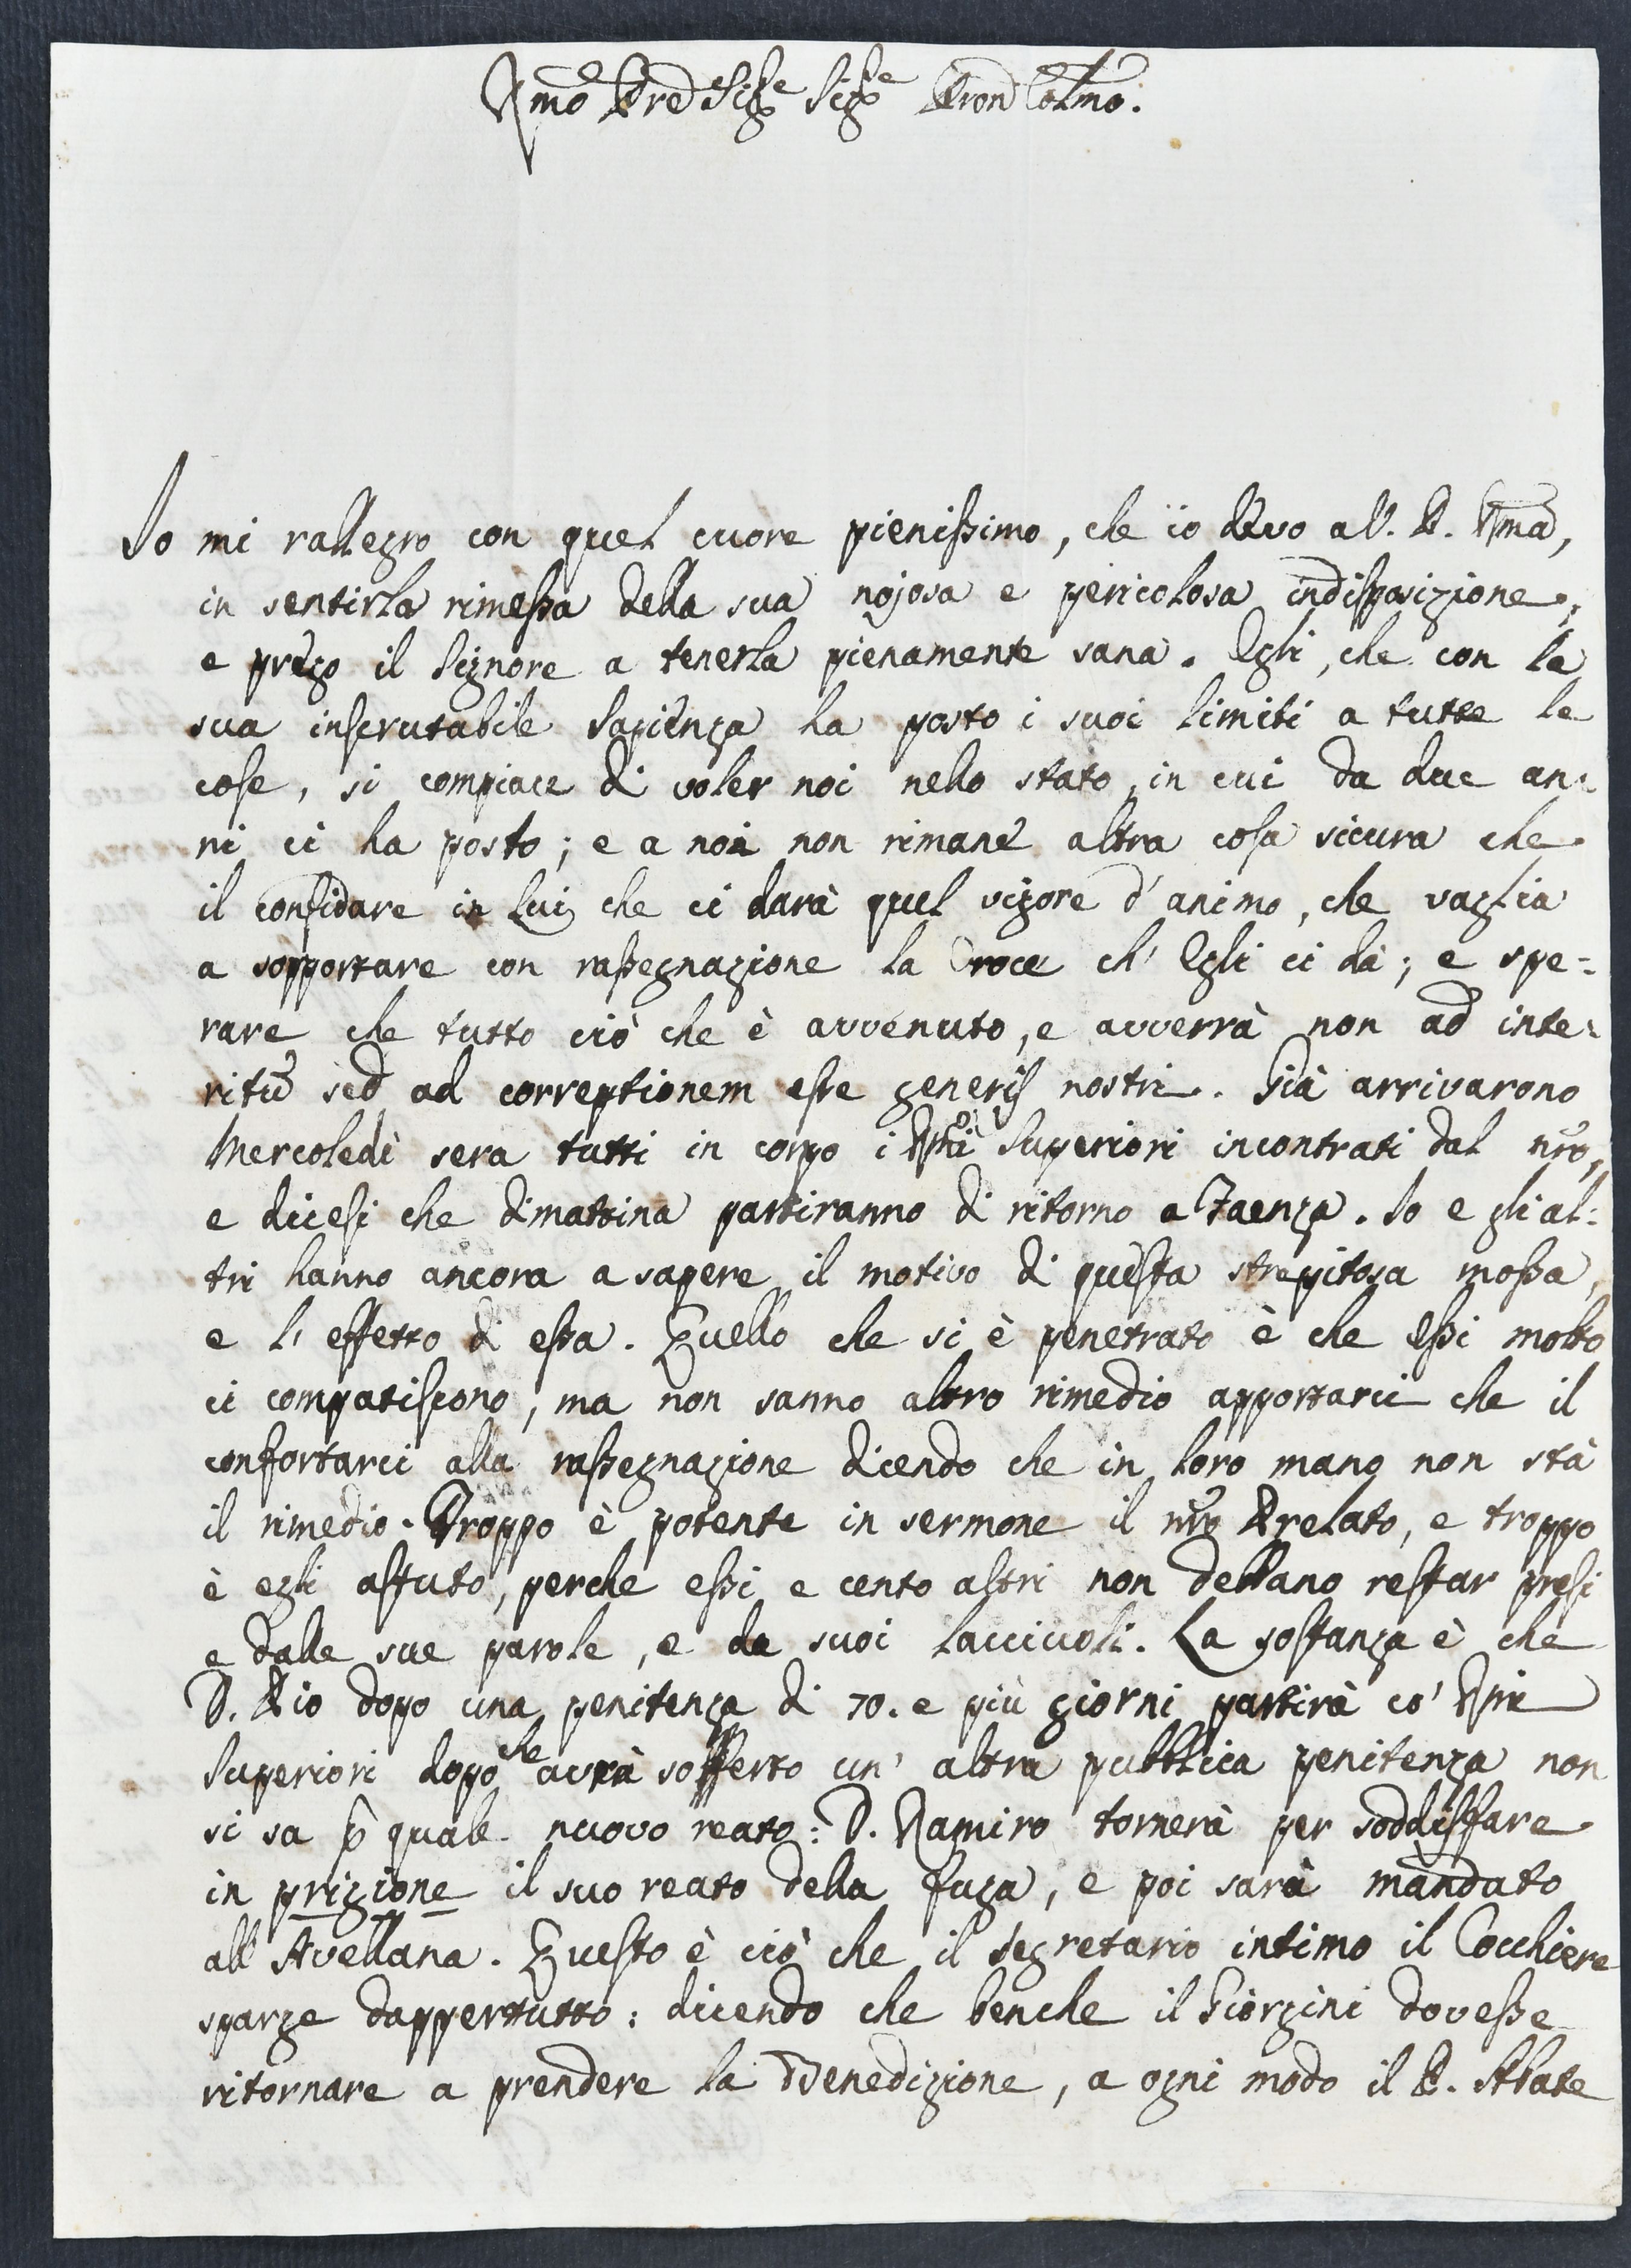 Rmo Pre Sigre Sigre Pron Colmo.
Io mi rallegro con quel cuore pienissimo, che io devo a V. P. Rma,
in sentirla rimessa della sua nojosa e pericolosa indisposizione,
e prego il Signore a tenerla pienamente sana. Egli, che con la
sua inscrutabile Sapienza ha posto i suoi limiti a tutte le
cose, si compiace di voler noi nello stato, in cui da due an=
ni ci ha posto; e a noi non rimane altra cosa sicura che
il confidare in Lui, che ci darà quel vigore d'animo, che vaglia
a sopportare con rassegnazione la Croce ch'Egli ci dà; e spe=
rare che tutto ciò che è avvenuto, e avverrà non ad inte=
ritũ sed ad correptionem esse generis nostri. Già arrivarono
Mercoledì sera tutti in corpo i Rmi Superiori incontrati dal nro,
e dicesi che dimattina partiranno di ritorno a Faenza. Io e gli al=
tri hanno ancora a sapere il motivo di questa strepitosa mossa,
e l'effetto di essa. Quello che si è penetrato è che Essi molto
ci compatiscono, ma non sanno altro rimedio apportarci che il
confortarci alla rassegnazione dicendo che in loro mano non stà
il rimedio. Troppo è potente in sermone il nro Prelato, e troppo
è egli astuto, perche essi e cento altri non debbano restar presi
e dalle sue parole, e da suoi lacciuoli. La sostanza è che
D. Pio dopo una penitenza di 70. e più giorni partirà co' Rmi
Superiori dopo che avrà sofferto un'altra pubblica penitenza non
si sa p quale nuovo reato: D. Ramiro tornerà per soddisfare
in prigione il suo reato della fuga, e poi sarà mandato
all'Avellana. Questo è ciò che il segretario intimo il Cocchiere
sparge dappertutto: dicendo che benche il Giorgini dovesse
ritornare a prendere la Benedizione, a ogni modo il P. Abate